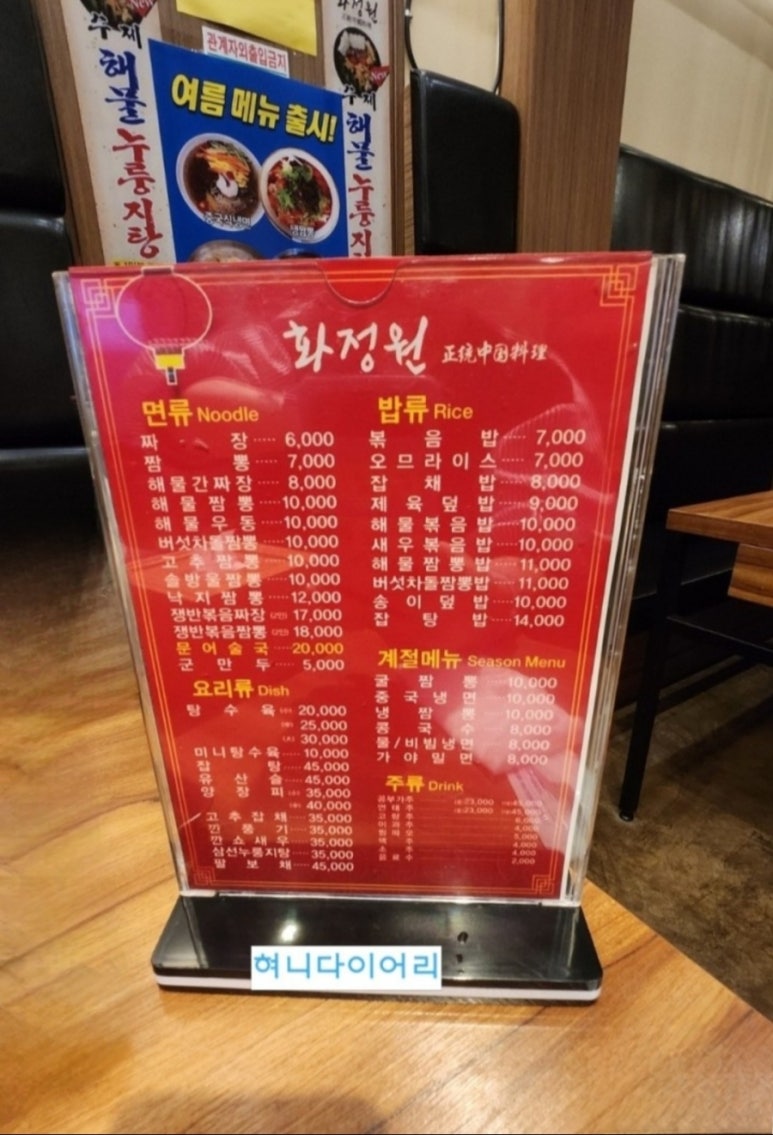 화정원
수제
해물누룽지탕
New
관계자외출입금지
여름 메뉴 출시!
중국식냉면
냉짬뽕
수제
해물누룽지
New
화정원 正統中国料理
면류 Noodle
짜장 6,000
짬뽕 7,000
해물간짜장 8,000
해물짬뽕 10,000
해물우동 10,000
버섯차돌짬뽕 10,000
고추짬뽕 10,000
솔방울짬뽕 10,000
낙지짬뽕 12,000
쟁반볶음짜장 (2인) 17,000
쟁반볶음짬뽕 (2인) 18,000
문어술국 20,000
군만두 5,000
요리류 Dish
탕수육 (小) 20,000
(中) 25,000
(大) 30,000
미니탕수육 10,000
잡탕 45,000
유산슬 45,000
양장피 (小) 35,000
(中) 40,000
고추잡채 35,000
깐풍기 35,000
깐쇼새우 35,000
삼선누룽지탕 35,000
팔보채 45,000
밥류 Rice
볶음밥 7,000
오므라이스 7,000
잡채밥 8,000
제육덮밥 9,000
해물볶음밥 10,000
새우볶음밥 10,000
해물짬뽕밥 11,000
버섯차돌짬뽕밥 11,000
송이덮밥 10,000
잡탕밥 14,000
계절메뉴 Season Menu
굴짬뽕 10,000
중국냉면 10,000
냉짬뽕 10,000
콩국수 8,000
물/비빔냉면 8,000
가야밀면 8,000
주류 Drink
공부가주 (小)23,000 (大)45,000
연태주 (小)23,000 (大)45,000
고량주 6,000
이과주 4,000
5,000
맥주 4,000
소주 4,000
음료수 2,000
혀니다이어리